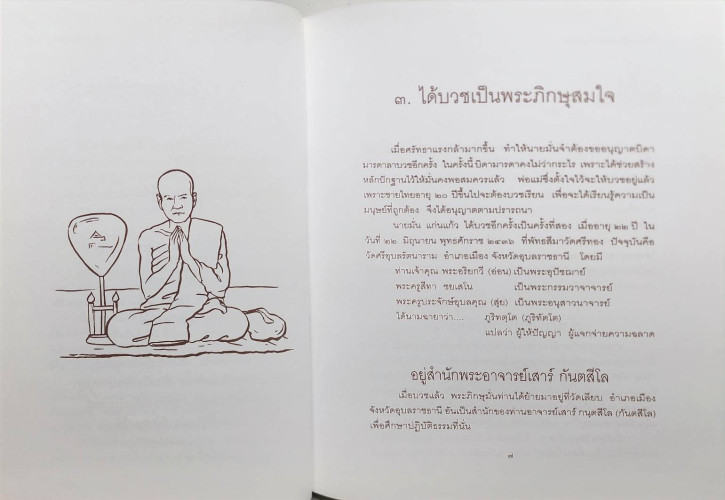 ๓. ได้บวชเป็นพระภิกษุสมใจ
เมื่อศรัทธาแรงกล้ามากขึ้น ทำให้นายมั่นจำต้องขออนุญาตบิดา
มารดาลาบวชอีกครั้ง ในครั้งนี้บิดามารดาคงไม่ว่ากระไร เพราะได้ช่วยสร้าง
หลักปักฐานไว้ให้มั่นคงพอสมควรแล้ว พ่อแม่ซึ่งตั้งใจไว้จะให้บวชอยู่แล้ว
เพราะชายไทยอายุ ๒๐ ปีขึ้นไปจะต้องบวชเรียน เพื่อจะได้เรียนรู้ความเป็น
มนุษย์ที่ถูกต้อง จึงได้อนุญาตตามปรารถนา
นายมั่น แก่นแก้ว ได้บวชอีกครั้งเป็นครั้งที่สอง เมื่ออายุ ๒๒ ปี ใน
วันที่ ๒๒ มิถุนายน พุทธศักราช ๒๔๓๖ ที่พัทธสีมาวัดศรีทอง ปัจจุบันคือ
วัดศรีอุบลรัตนาราม อำเภอเมือง จังหวัดอุบลราชธานี โดยมี
ท่านเจ้าคุณ พระอริยกวี (อ่อน) เป็นพระอุปัชฌาย์
พระครูสีทา ชยเสโน เป็นพระกรรมวาจาจารย์
พระครูประจักษ์อุบลคุณ (สุ่ย) เป็นพระอนุสาวนาจารย์
ได้นามฉายาว่า.... ภูริทตฺโต (ภูริทัตโต)
แปลว่า ผู้ให้ปัญญา ผู้แจกจ่ายความฉลาด
อยู่สำนักพระอาจารย์เสาร์ กันตสีโล
เมื่อบวชแล้ว พระภิกษุมั่นท่านได้ย้ายมาอยู่ที่วัดเลียบ อำเภอเมือง
จังหวัดอุบลราชธานี อันเป็นสำนักของท่านอาจารย์เสาร์ กนฺตสีโล (กันตสีโล)
เพื่อศึกษาปฏิบัติธรรมที่นั่น
๗